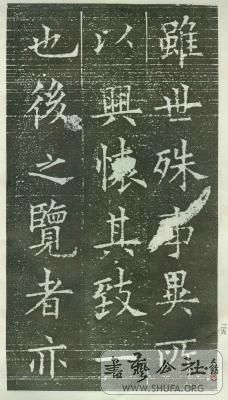 雖世殊事異所
以興懷其致一
也後之覽者亦
書藝公社
WWW.SHUFA.ORG